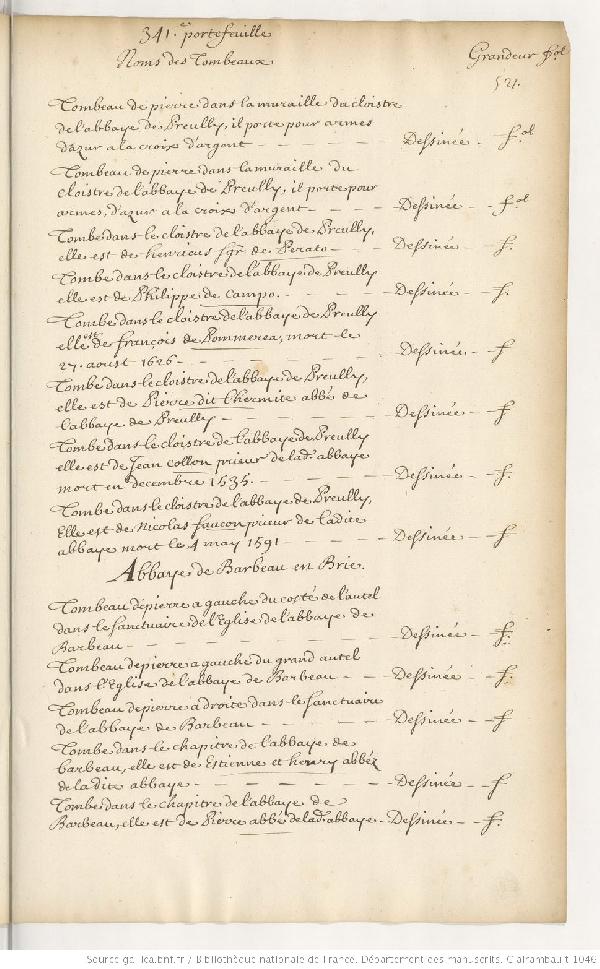 341.e portefeuille
Noms des Tombeaux
Grandeur fol
521.
Tombeau de pierre dans la muraille du cloistre
de l'abbaye de Preully, il porte pour armes
d'azur a la croix d'argent - - - - Dessinée - fol
Tombeau de pierre dans la muraille du
cloistre de l'abbaye de Preully, il porte pour
armes, d'azur a la croix d'argent - - - - Dessinée - fol
Tombe dans le cloistre de l'abbaye de Preully,
elle est de henricus sgr de Perato - - - Dessinée - f.
Tombe dans le cloistre de l'abbaye de Preully
elle est de Philippe de Campo. - - - - Dessinée - f.
Tombe dans le cloistre de l'abbaye de Preully
elle est de françois de Pommerea, mort le
27. aoust 1626. - - - - Dessinée - f
Tombe dans le cloistre de l'abbaye de Preully,
elle est de Pierre dit l'hermite abbé de
l'abbaye de Preully - - - - Dessinée - f
Tombe dans le cloistre de l'abbaye de Preully
elle est de Jean Collon prieur de lad. abbaye
mort en decembre 1535. - - - - Dessinée - f.
Tombe dans le cloistre de l'abbaye de Preully,
Elle est de Nicolas faucon prieur de ladite
abbaye mort le 4 may 1591 - - - - Dessinée - f
Abbaye de Barbeau en Brie.
Tombeau de pierre a gauche du costé de l'autel
dans le sanctuaire de l'Eglise de l'abbaye de
Barbeau - - - - Dessinée - f.
Tombeau de pierre a gauche du grand autel
dans l'Eglise de l'abbaye de Barbeau - - Dessinée - f.
Tombeau de pierre a droite dans le sanctuaire
de l'abbaye de Barbeau - - - - Dessinée - f
Tombe dans le chapitre de l'abbaye de
barbeau, elle est de Estienne et henry abbéz
de la dite abbaye. - - - - Dessinée - f.
Tombe dans le chapitre de l'abbaye de
Barbeau, elle est de Pierre abbé de lad. abbaye - Dessinée - f.
Source gallica.bnf.fr / Bibliothèque nationale de France. Département des manuscrits. Clairambault 1046